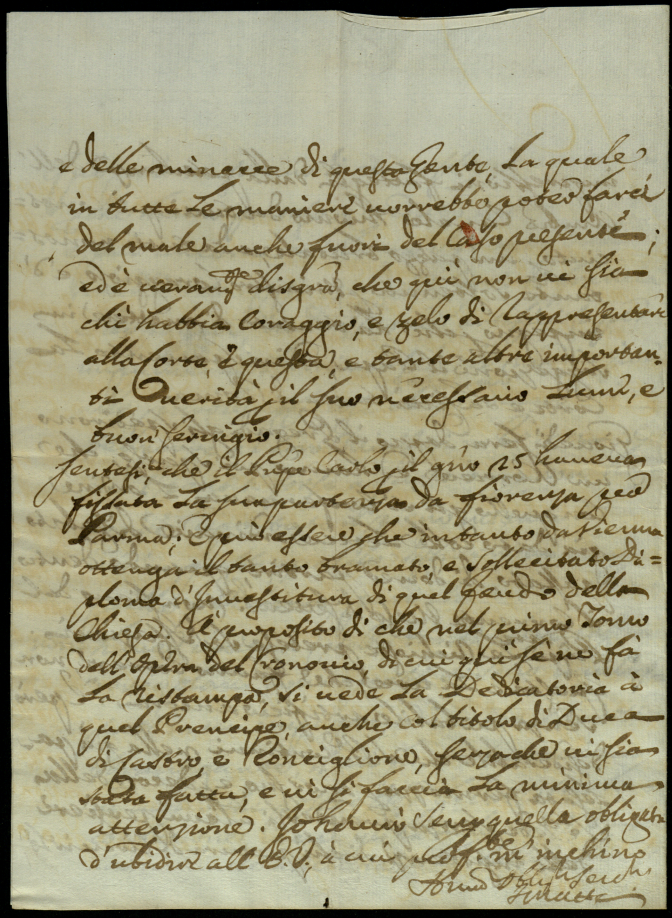 e delle minacce di questa Gente, la quale
in tutte le maniere vorrebbe poter farci
del male anche fuori del Caso presente;
ed è veram.te disgra, che quì non vi sia
chi habbia Coraggio, e zelo di rappresentare
alla Corte, e questa, e tante altre importan-
ti verità il suo necessario lume, e
buon servigio.
Sentesi, che il Prpe Carlo il g'no 25 haveva
fissata la sua partenza da fiorenza per
Parma; e può essere che intanto da Vienna
ottenga il tanto bramato e sollecitato Di=
ploma d'Investitura di quel feudo della
Chiesa. A proposito di che nel primo Tomo
dell'Opera del di cui quì se ne fà
la ristampa, si vede la Dedicatoria à
quel Prencipe, anche col titolo di Duca
di Castro, e Ronciglione, senza che vi sia
stata fatta, e vi si faccia la minima
attenzione. sempre quella obligata
d'ubidire all' à cui prof.te m'inchino